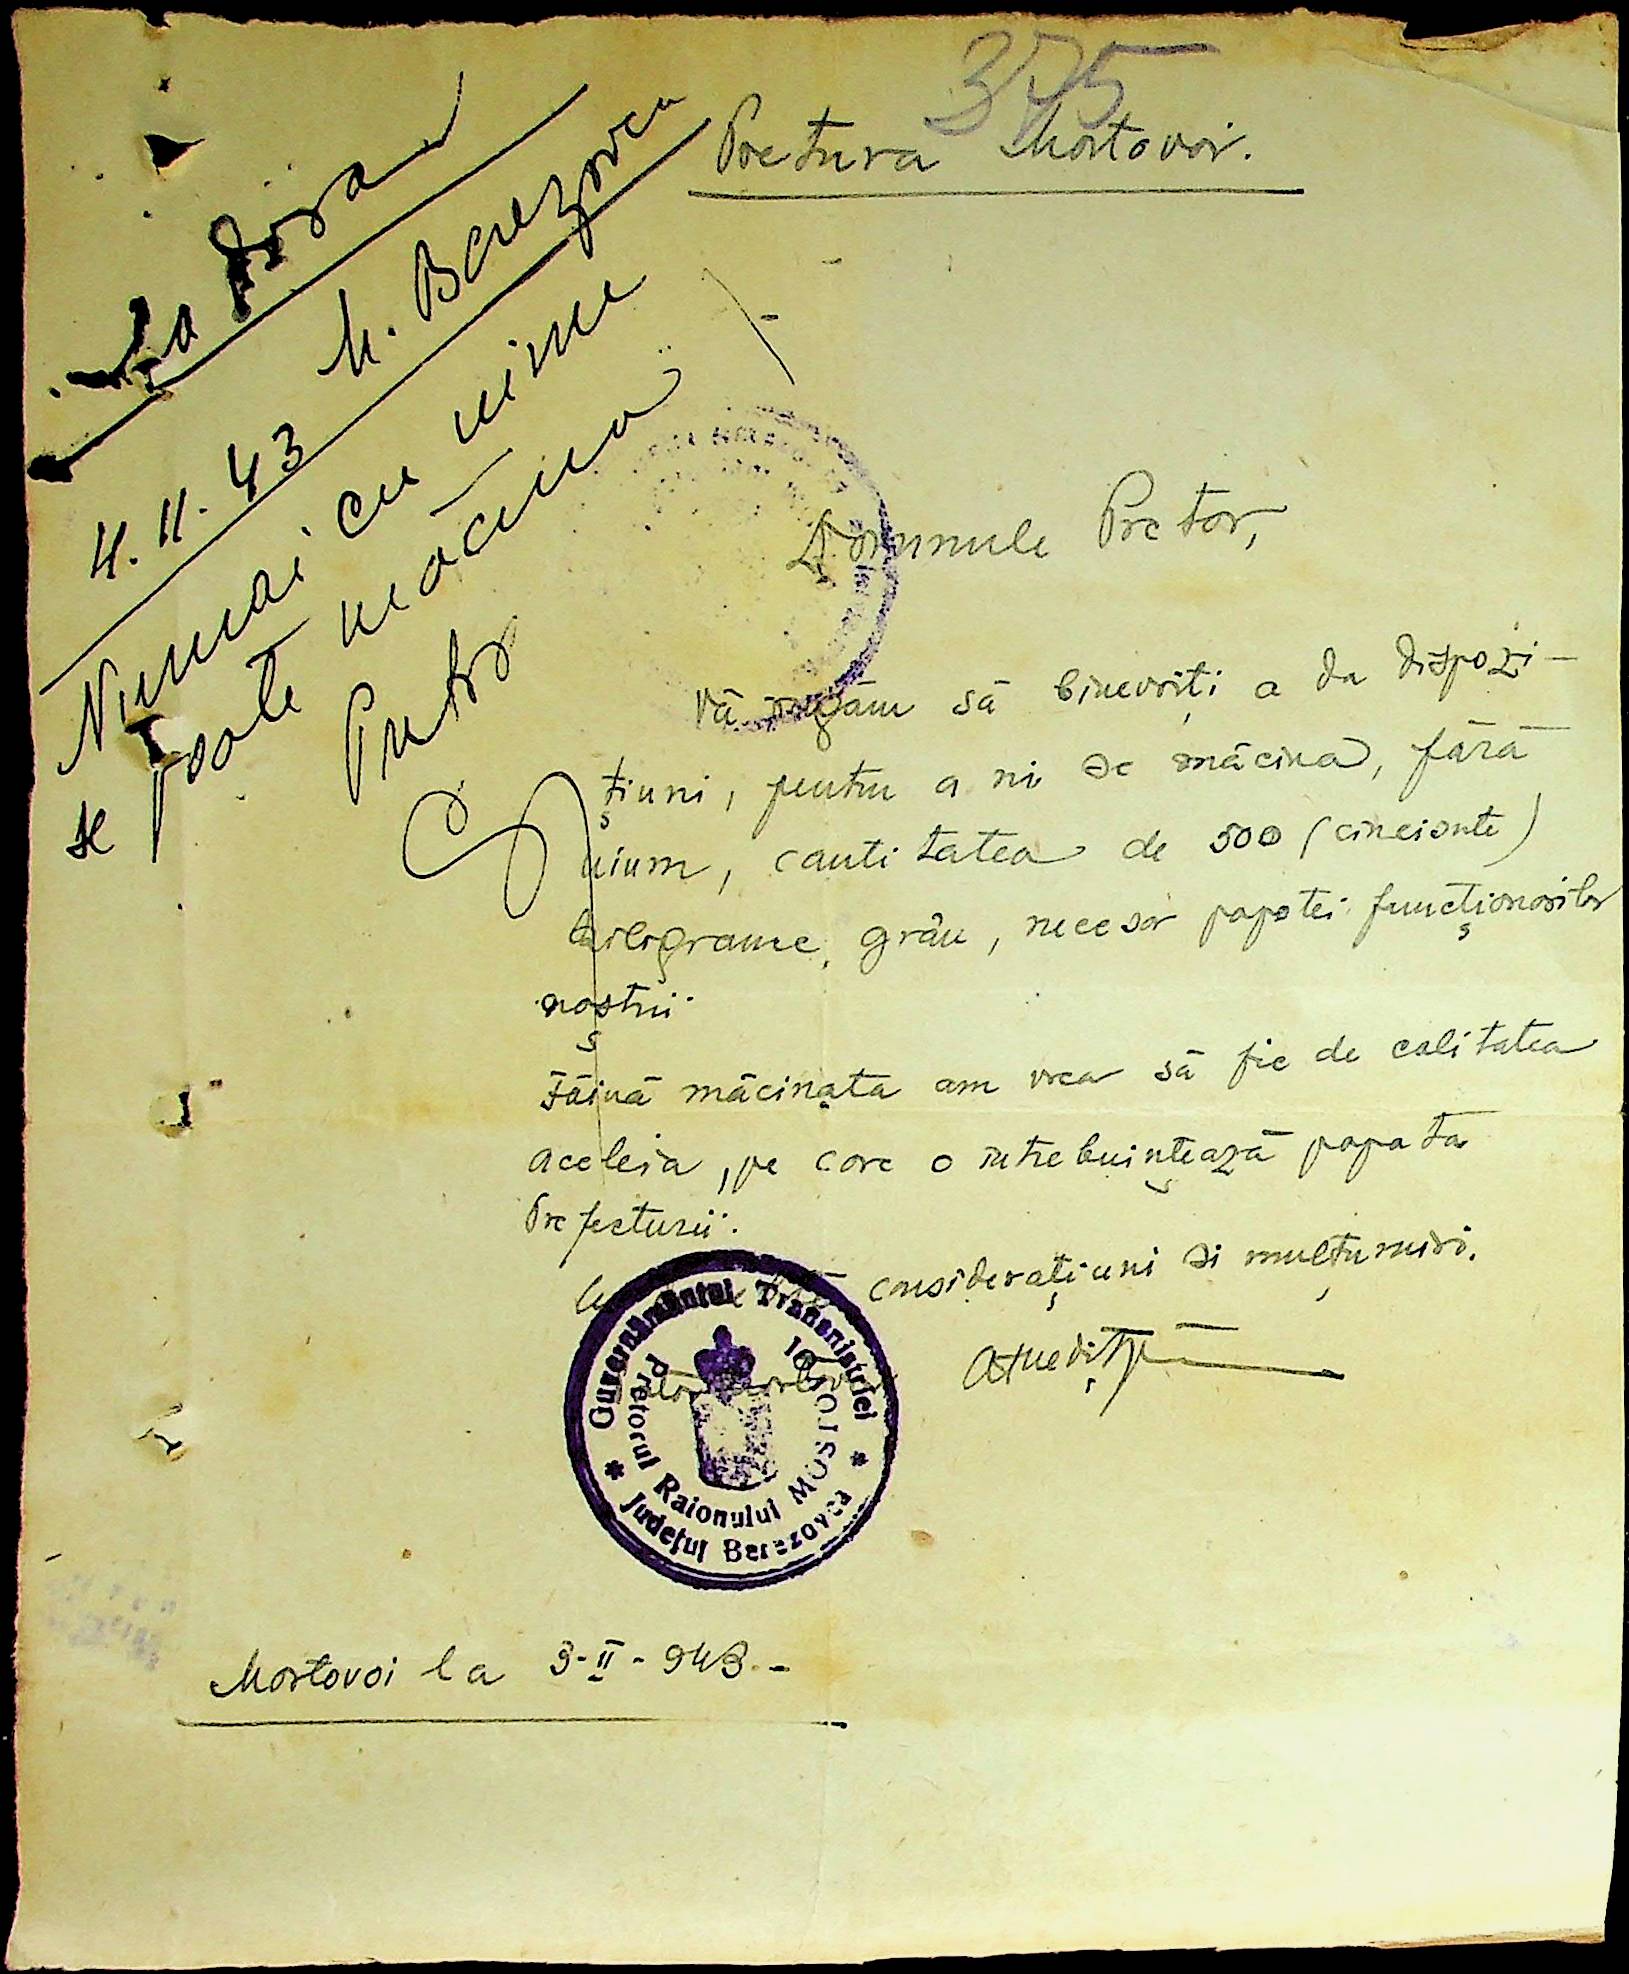 375
Pretura Mostovoi.
La dosar
4.II.43 M. Berezovca
Numai cu uium
se poate măcina
Domnule Pretor,
Vă rugăm să binevoiți a da dispozi-
țiuni, pentru a ni se măcina, fără
uium, cantitatea de 500 (cincisute)
kilograme grâu, necesar papotei funcționarilor
noștrii.
Făină măcinata am vrea să fie de calitatea
aceleia, pe care o intrebuințează popota
Prefecturii.
considerațiuni si mulțumiri.
Guvernământul Transnistriei
Pretorul Raionului MOSTOVOI
Județul Berezovca
Mostovoi la 3-II-943.-